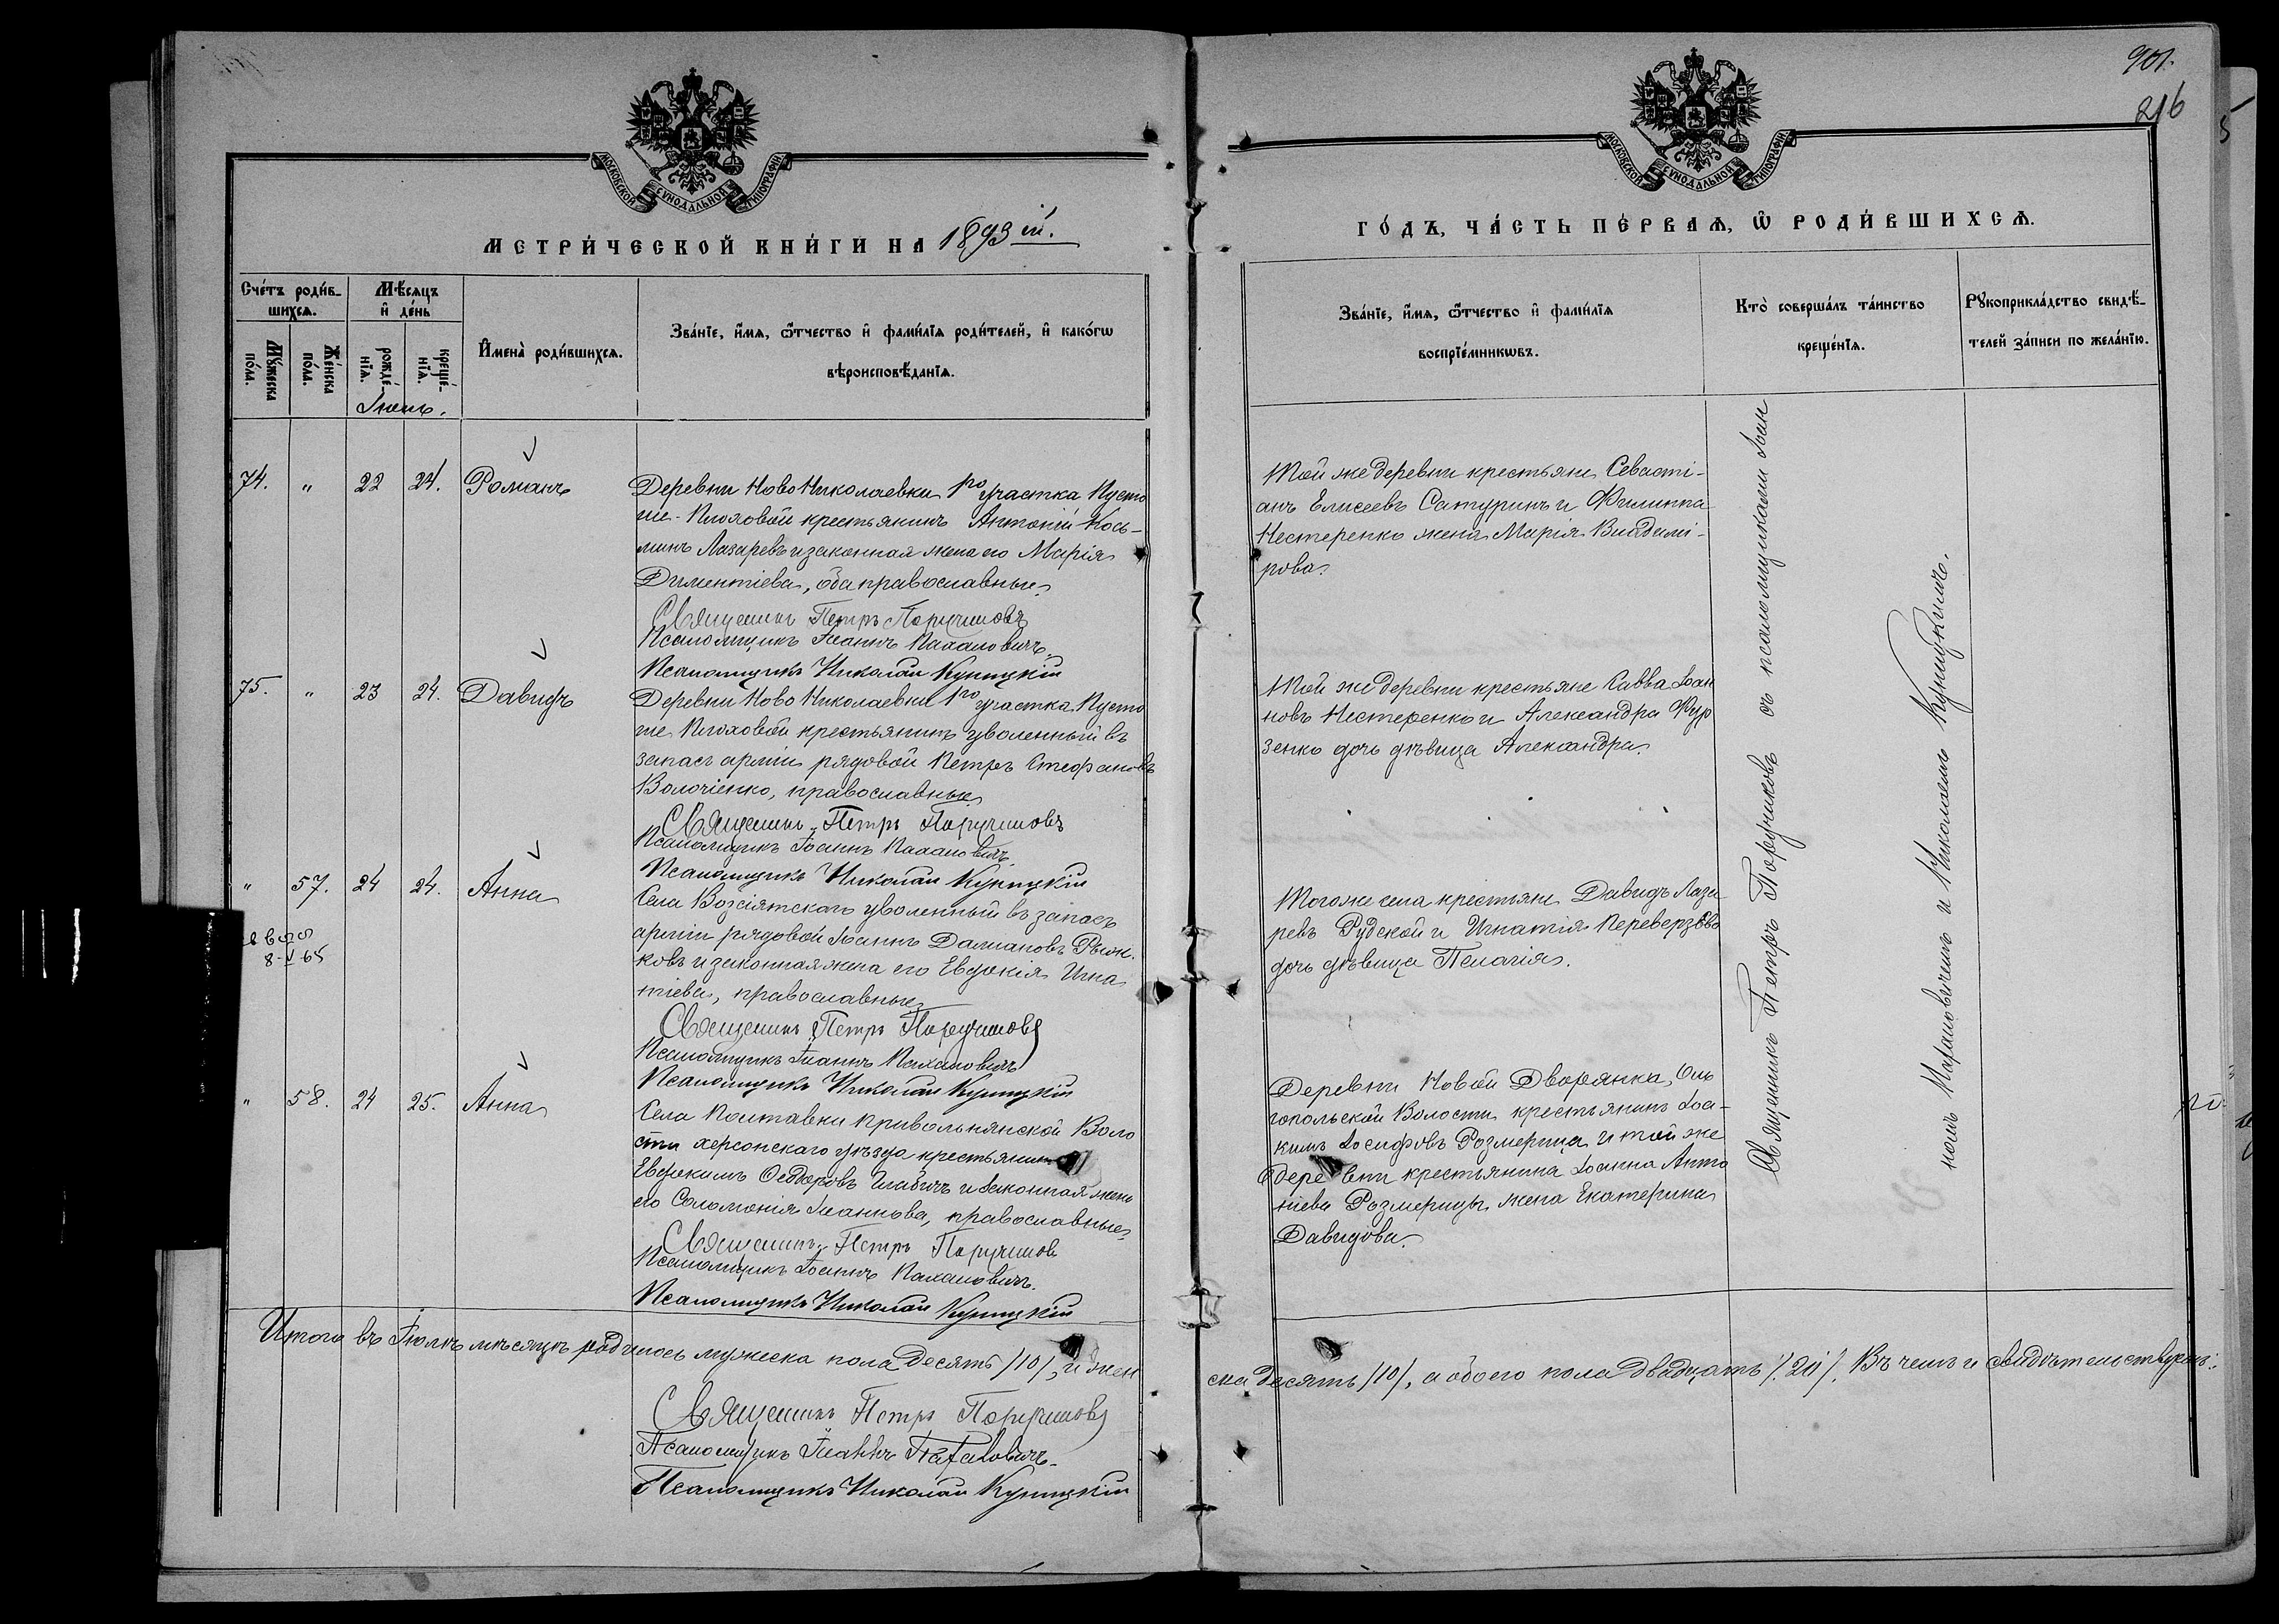 901.
216
МОСКОВСКОЙ СѴНОДАЛЬНОЙ ТИПОГРАФІИ
МОСКОВСКОЙ СѴНОДАЛЬНОЙ ТИПОГРАФІИ
МЕТРИ́ЧЕСКОЙ КНИ́ГИ НА 1893 ій.
ГО́ДЪ, ЧА́СТЬ ПЕ́РВАѦ, Ѿ РОДИ́ВШИХСѦ.
Сче́тъ роди́вшихсѧ.
Мꙋ́жеска по́ла.
Же́нска по́ла.
Мѣ́сѧцъ и҆ де́нь
рожде́нїѧ.
креще́нїѧ.
Іюнь.
И҆мена̀ роди́вшихсѧ.
Зва́нїе, и҆́мѧ, ѻ҆́тчество и҆ фами́лїѧ роди́телей, и҆ како́гѡ
вѣроисповѣ́данїѧ.
Зва́нїе, и҆́мѧ, ѻ҆́тчество и҆ фами́лїѧ
воспрїе́мникѡвъ.
Кто̀ соверша́лъ та́инство
креще́нїѧ.
Рꙋкоприкла́дство свидѣ́-
телей за́писи по жела́нїю.
74. " 22 24. Романъ
Деревни НовоНиколаевки 1го участка Пусто
ши - Плоховой крестьянинъ Антоній Кось-
минъ Лазаревъ и законная жена его Марія
Диментіева, оба православные
Священникъ Петръ Поручиковъ
Псаломщикъ Іоаннъ Пахаловичъ
Псаломщикъ Николай Куницкій
Той же деревни крестьяне Севасті-
анъ Елисеевъ Сатуринъ и Филиппа
Нестеренко жена Марія Владимі-
рова.
75. " 23 24. Давидъ
Деревни НовоНиколаевки 1го участка Пусто
ши Плоховой крестьянинъ уволенный въ
запасъ арміи рядовой Петръ Стефановъ
Волочіенко, православные
Священникъ Петръ Поручиковъ
Псаломщикъ Іоаннъ Пахаловичъ.
Псаломщикъ Николай Куницкій
Той же деревни крестьяне Савва Іоан
новъ Нестеренко и Александра Фур
зенко дочь дѣвица Александра.
" 57. 24 24. Анна
8-V-65
Села Возсіятскаго уволенный въ запасъ
арміи рядовой Іоаннъ Даміановъ
ковъ и законная жена его Евдокія Игна
тіева, православные
Священникъ Петръ Поручиковъ
Псаломщикъ Іоаннъ Пахаловичъ
Псаломщикъ Николай Куницкій
Того же села крестьяне Давидъ Лаза
ревъ Рудской и Игнатія Переверзево
дочь дѣвица Пелагія.
" 58. 24 25. Анна
Села Полтавки Привольнянской Воло
сти херсонскаго уѣзда крестьянинъ
Евдокимъ Ѳедоровъ и законная жена
его Соломонія Іоаннова, православные
Священникъ Петръ Поручиковъ
Псаломщикъ Іоаннъ Пахаловичъ.
Псаломщикъ Николай Куницкій
Деревни Новой Дворянка, Оль
гопольской Волости, крестьянинъ Іоа-
кимъ Іосифовъ Розмерица и той же
деревни крестьянина Іоанна Анто
ніева Розмерицы жена Екатерина
Давидова.
Священникъ Петръ Поручиковъ съ псаломщиками Іоан
номъ Пахаловичемъ и Николаемъ Куницкимъ.
Итого въ Іюнѣ мѣсяцѣ родилось мужеска пола десять /10/, и жен
ска десять /10/, а обоего пола двадцать /20/. Въ чемъ и свидѣтельствуемъ:
Священникъ Петръ Поручиковъ
Псаломщикъ Іоаннъ Пахаловичъ
Псаломщикъ Николай Куницкій